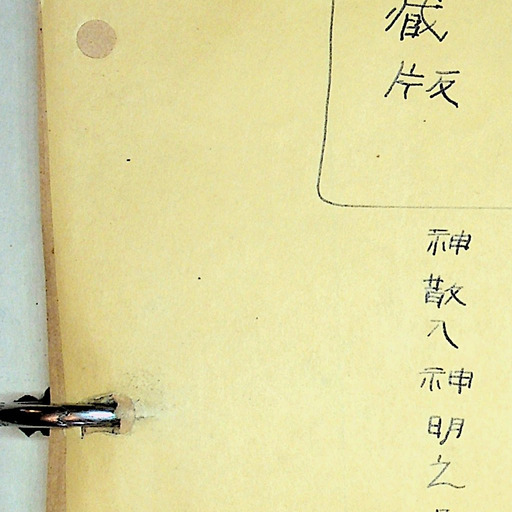 藏版
神散入神明之